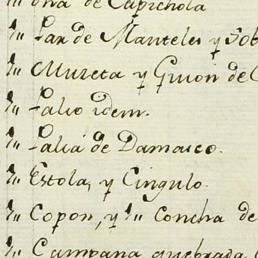 de Capichola
1 Par de Manteles y
1 Muzeta y Guion de
1 Palio idem.
1 Palia de Damasco.
1 Estola, y Cingulo.
1 Copon, y 1 Concha de
1 Campana quebrada